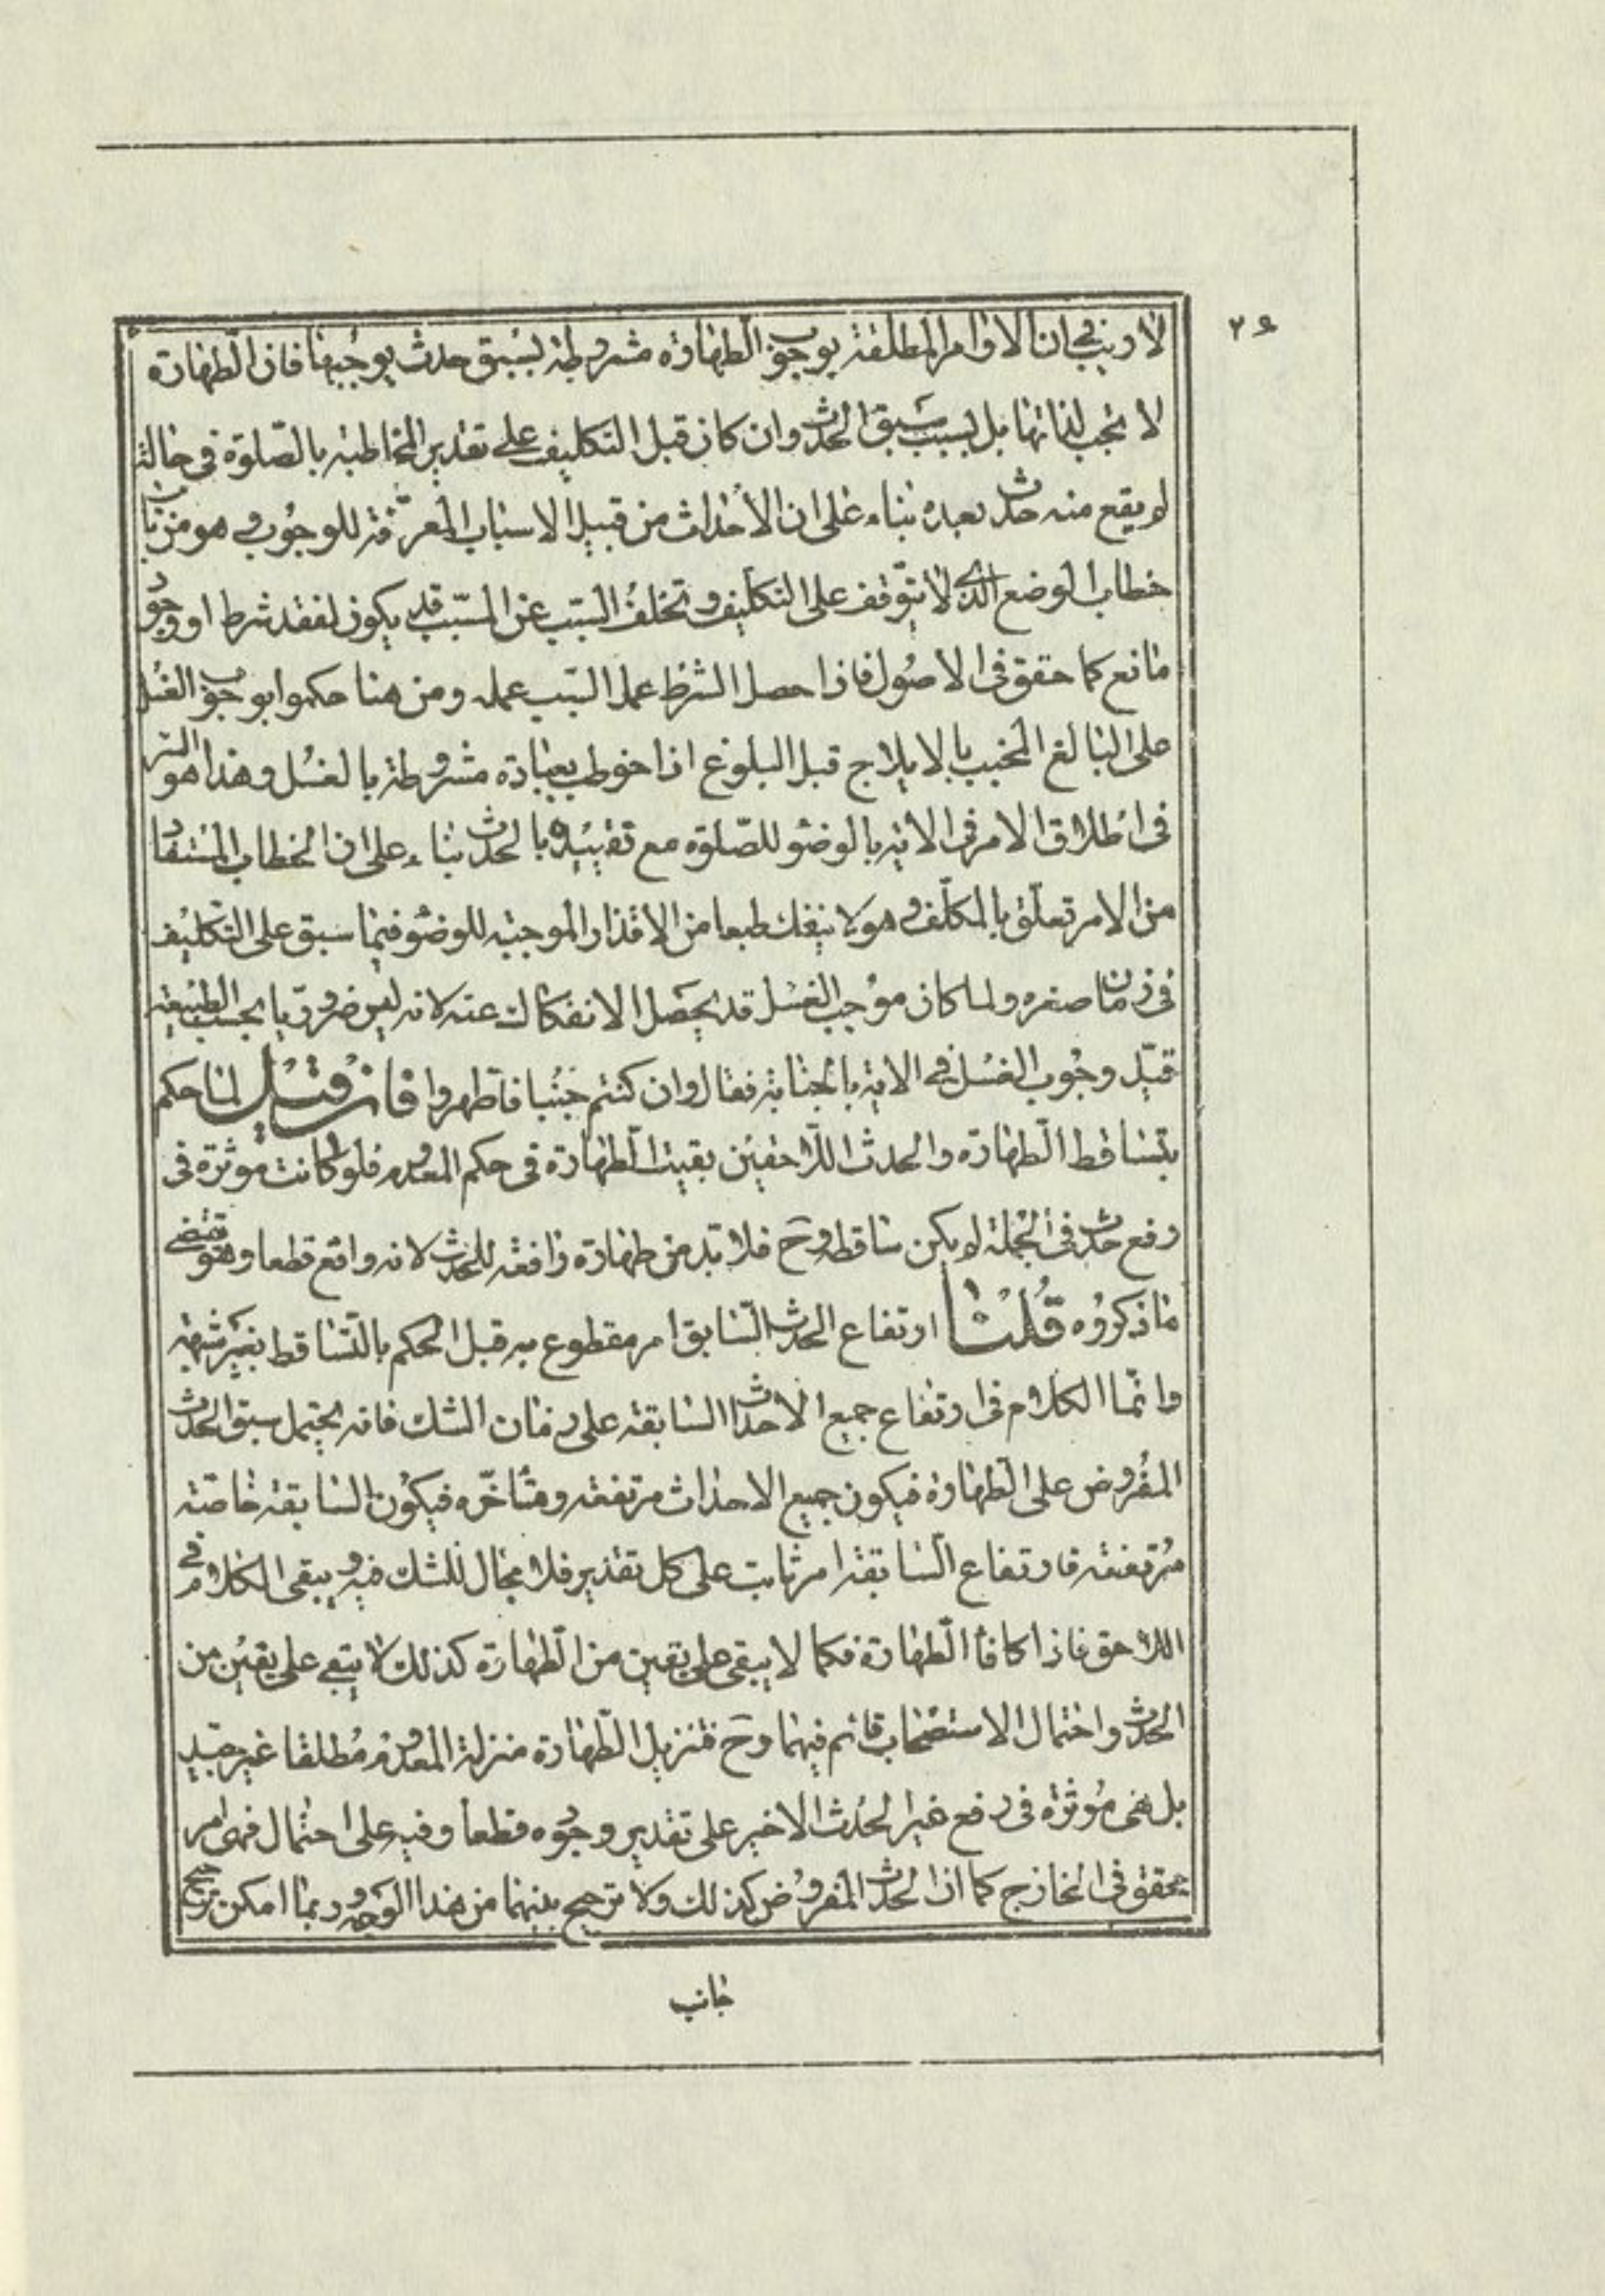 ٢۶
لا ريب في ان الاوامر المطلقة بوجوب الطهارة مشروطة بسبق حدث يوجبها فان الطهارة
لا تجب لذاتها بل بسبب سبق الحدث وان كان قبل التكليف على تقدير المخاطبه بالصلوة في حالة
لم يقع منه حدث بعده بناء على ان الاحداث من قبيل الاسباب المعرّفة للوجوب وهو من باب
خطاب الوضع الذي لا يتوقف على التكليف وتخلف السبب عن المسبّب قد يكون لفقد شرط او وجود
مانع كما حقق في الاصول فاذا حصل الشرط عمل السّبب عمله ومن هنا حكموا بوجوب الغسل
على البالغ المجنب بالايلاج قبل البلوغ اذا خوطب بعبادة مشروطة بالغسل وهذا هو السّر
في اطلاق الامر في الاية بالوضوء للصّلوة مع تقييده بالحدث بناء على ان الخطاب المستفاد
من الامر تعلّق بالمكلّف وهو لا ينفك طبعا من الاقذار الموجبه للوضوء فيما سبق على التكليف
في زمان صغره ولما كان موجب الغسل قد يحصل الانفكاك عنه لانه ليس ضروريّا بحسب الطبيعة
قيّد وجوب الغسل في الاية بالجنابة فقال وان كنتم جنبا فاطّهروا فان قيل لمّا حكم
بتساقط الطهارة والحدث اللاحقين بقيت الطهارة في حكم المعدوم فلو كانت موثرة في
رفع حدث في الجملة لم يكن ساقطه وح فلا بد من طهارة رافعة للحدث لانه واقع قطعا وهو مقتضى
ما ذكروه قلنا ارتفاع الحدث السّابق امر مقطوع به قبل الحكم بالتّساقط بغير شبهة
وانّما الكلام في ارتفاع جميع الاحداث السابقة على زمان الشك فانه يحتمل سبق الحدث
المفروض على الطهارة فيكون جميع الاحداث مرتفعة ومتأخّره فيكون السابقة خاصّة
مرتفعة فارتفاع السّابقة امر ثابت على كل تقدير فلا مجال للشك فيه ويبقى الكلام في
اللاحق فاذا كافأ الطّهارة فكما لا يبقى على يقين من الطّهارة كذلك لا يبقى على يقين من
الحدث واحتمال الاستصحاب قائم فيهما وح فتنزيل الطّهارة منزلة المعدوم مطلقا غير جيّد
بل هي موثرة في رفع غير الحدث الاخير على تقدير وجوده قطعا وفيه على احتمال فهى امر
محقق في الخارج كما ان الحدث المفروض كذلك ولا ترجيح بينهما من هذا الوجه وربما امكن ترجيح
جانب